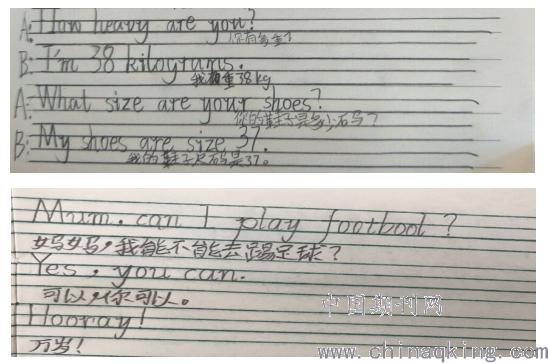 A: How heavy are you?
你有多重?
B: I'm 38 kilograms.
我重38kg
A: What size are your shoes?
你的鞋子是多少码?
B: My shoes are size 37.
我的鞋子尺码是37。
Mum, can I play footbool ?
妈妈,我能不能去踢足球?
Yes, you can.
可以,你可以。
Hooray!
万岁!
中国期刊网
www.chinaqking.com